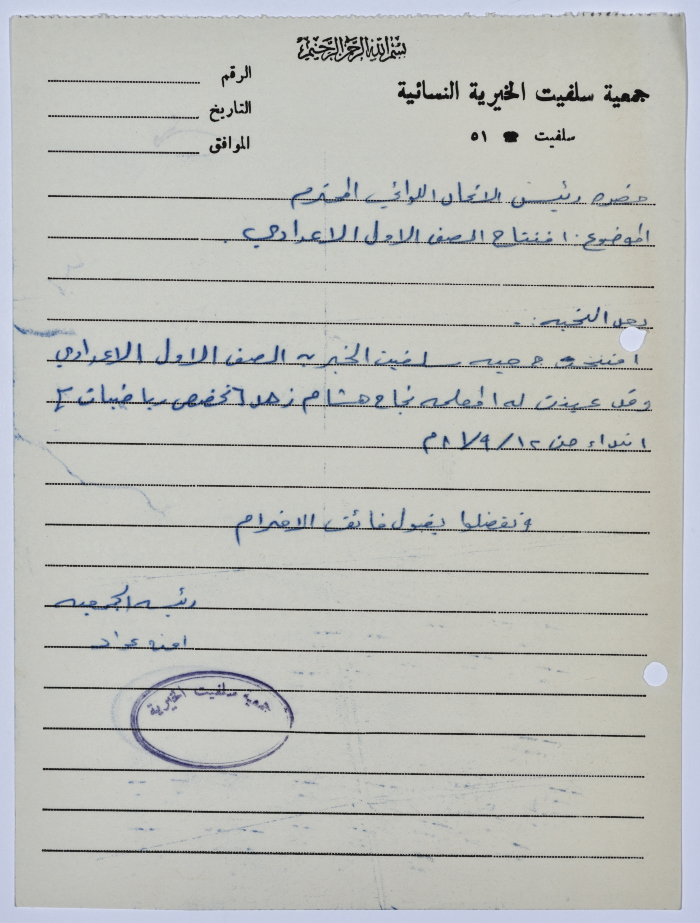 بسم الله الرحمن الرحيم
جمعية سلفيت الخيرية النسائية
سلفيت ☎ ٥١
الرقم
التاريخ
الموافق
حضرة رئيس الاتحاد اللوائي المحترم
الموضوع: افتتاح الصف الاول الاعدادي .
بعد التحيه :.
جمعيه سلفيت الخيريه الصف الاول الاعدادي
وقد عينت له المعلمه نجاح هشام زهد تخصص رياضيات
ابتداء من ١٢/٩/٨١م
وتفضلوا بقبول فائق الاحترام
رئيسه الجمعيه
امنه عواد
جمعية سلفيت الخيرية